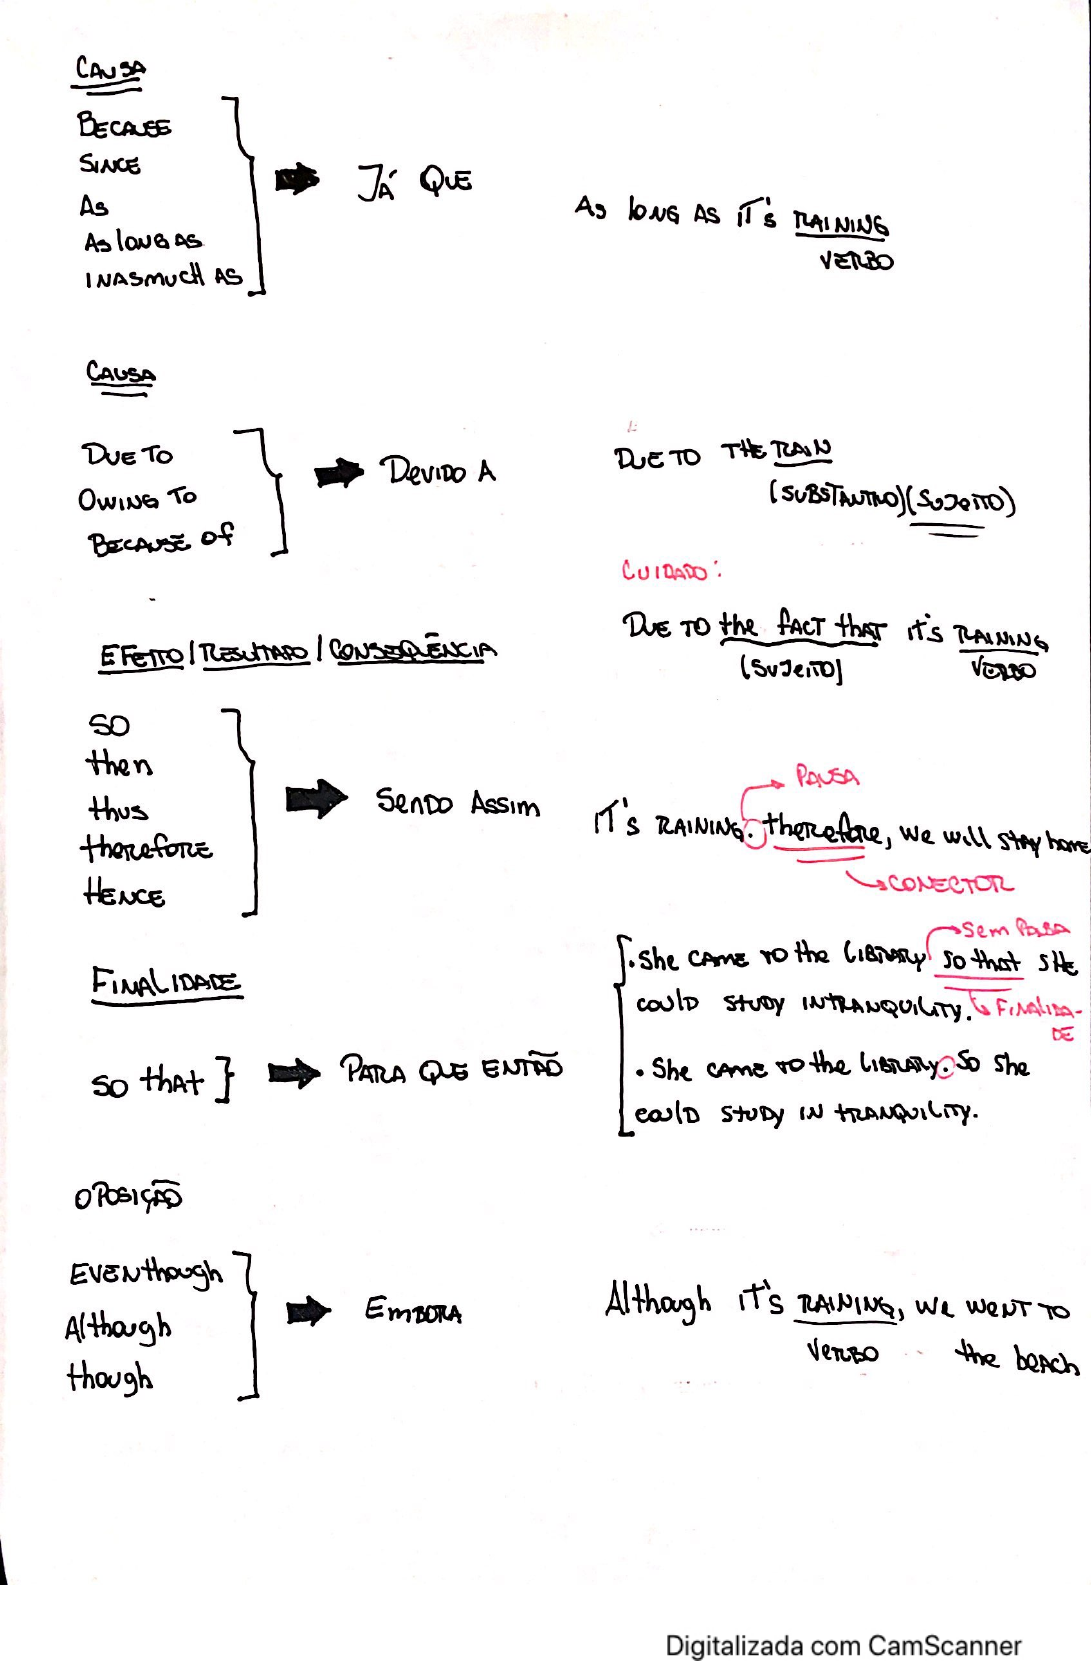 CAUSA
BECAUSE
SINCE
AS
AS LONG AS
INASMUCH AS
JÁ QUE
AS LONG AS IT'S RAINING
VERBO
CAUSA
DUE TO
OWING TO
BECAUSE OF
DEVIDO A
DUE TO THE RAIN
(SUBSTANTIVO)(SUJEITO)
CUIDADO:
DUE TO the FACT that IT'S RAINING
(SUJEITO) VERBO
EFEITO/RESULTADO/CONSEQUÊNCIA
SO
then
thus
therefore
HENCE
SENDO ASSIM
PAUSA
IT'S RAINING. therefore, we will stay home
CONECTOR
FINALIDADE
SO that
PARA QUE ENTÃO
Sem PAUSA
• She came to the LIBRARY so that SHE
could STUDY IN TRANQUILITY. FINALIDA-
DE
• She came to the LIBRARY. So she
could STUDY IN TRANQUILITY.
OPOSIÇÃO
EVEN though
Although
though
EMBORA
Although IT'S RAINING, we went to
VERBO the beach
Digitalizada com CamScanner